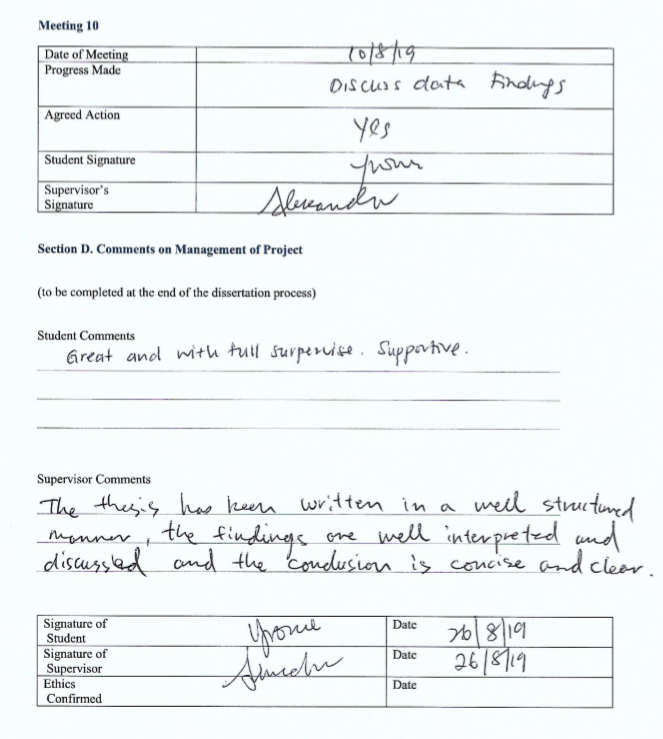 Meeting 10
Date of Meeting 10/8/19
Progress Made Discuss data Findings
Agreed Action Yes
Student Signature Yvonne
Supervisor's
Signature Alexandru
Section D. Comments on Management of Project
(to be completed at the end of the dissertation process)
Student Comments
Great and with full surpervise. Supportive.
Supervisor Comments
The thesis has been written in a well structured
manner, the findings are well interpreted and
discussed and the conclusion is concise and clear.
Signature of
Student Yvonne Date 26/8/19
Signature of
Supervisor Date 26/8/19
Ethics
Confirmed Date